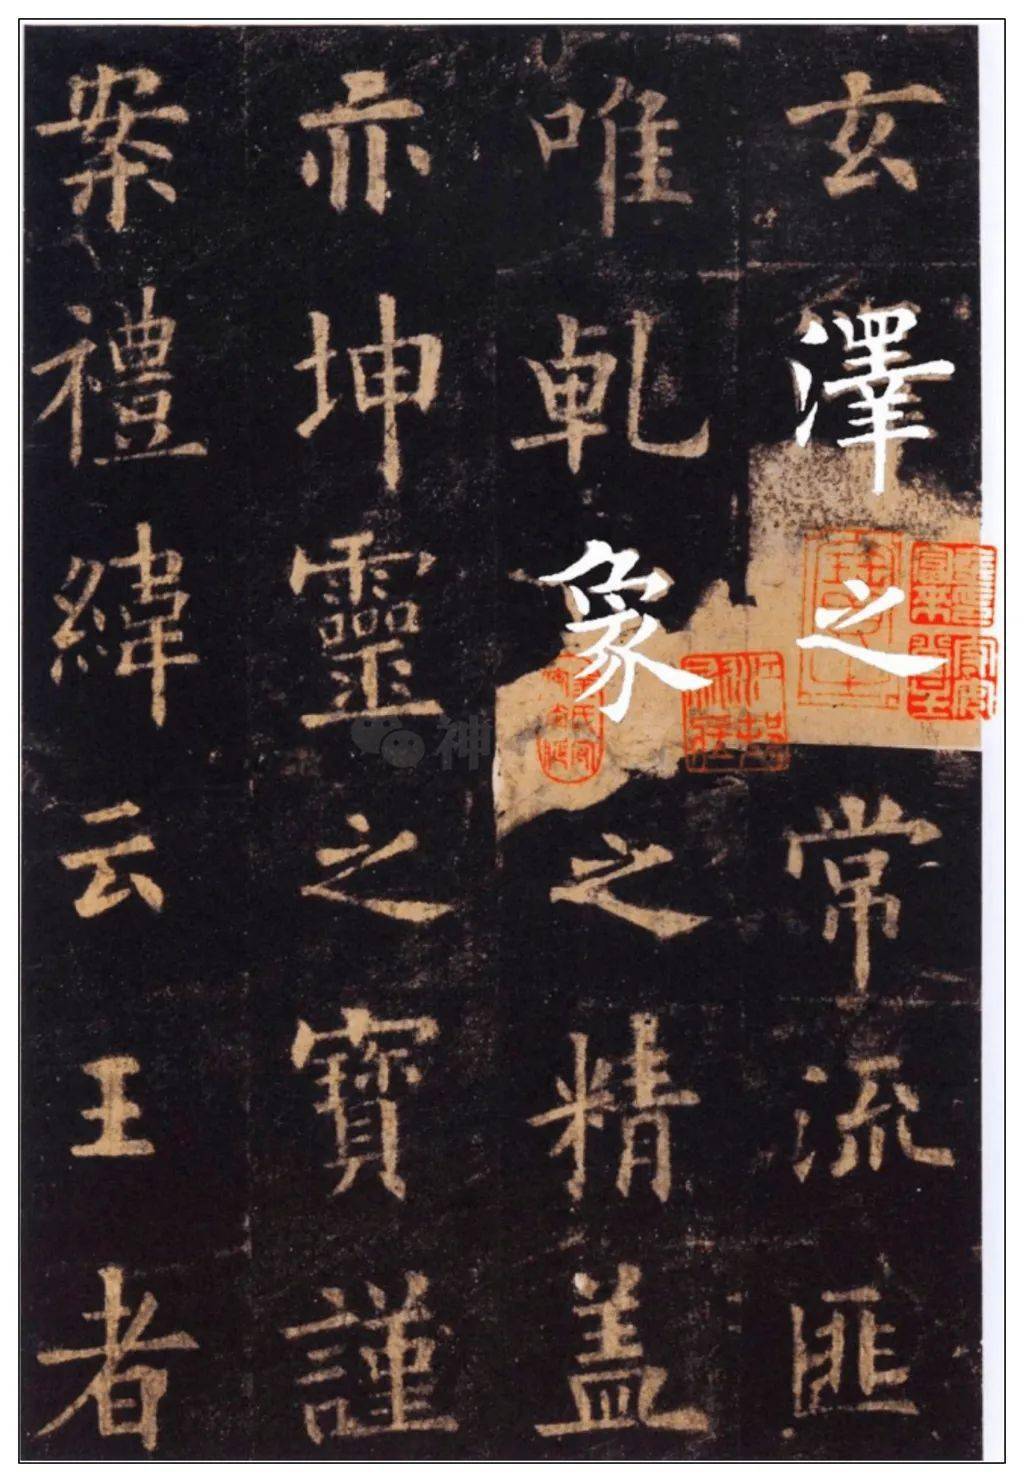 玄澤之常流匪
唯乹象之精盖
亦坤靈之寶謹
案禮緯云王者
神